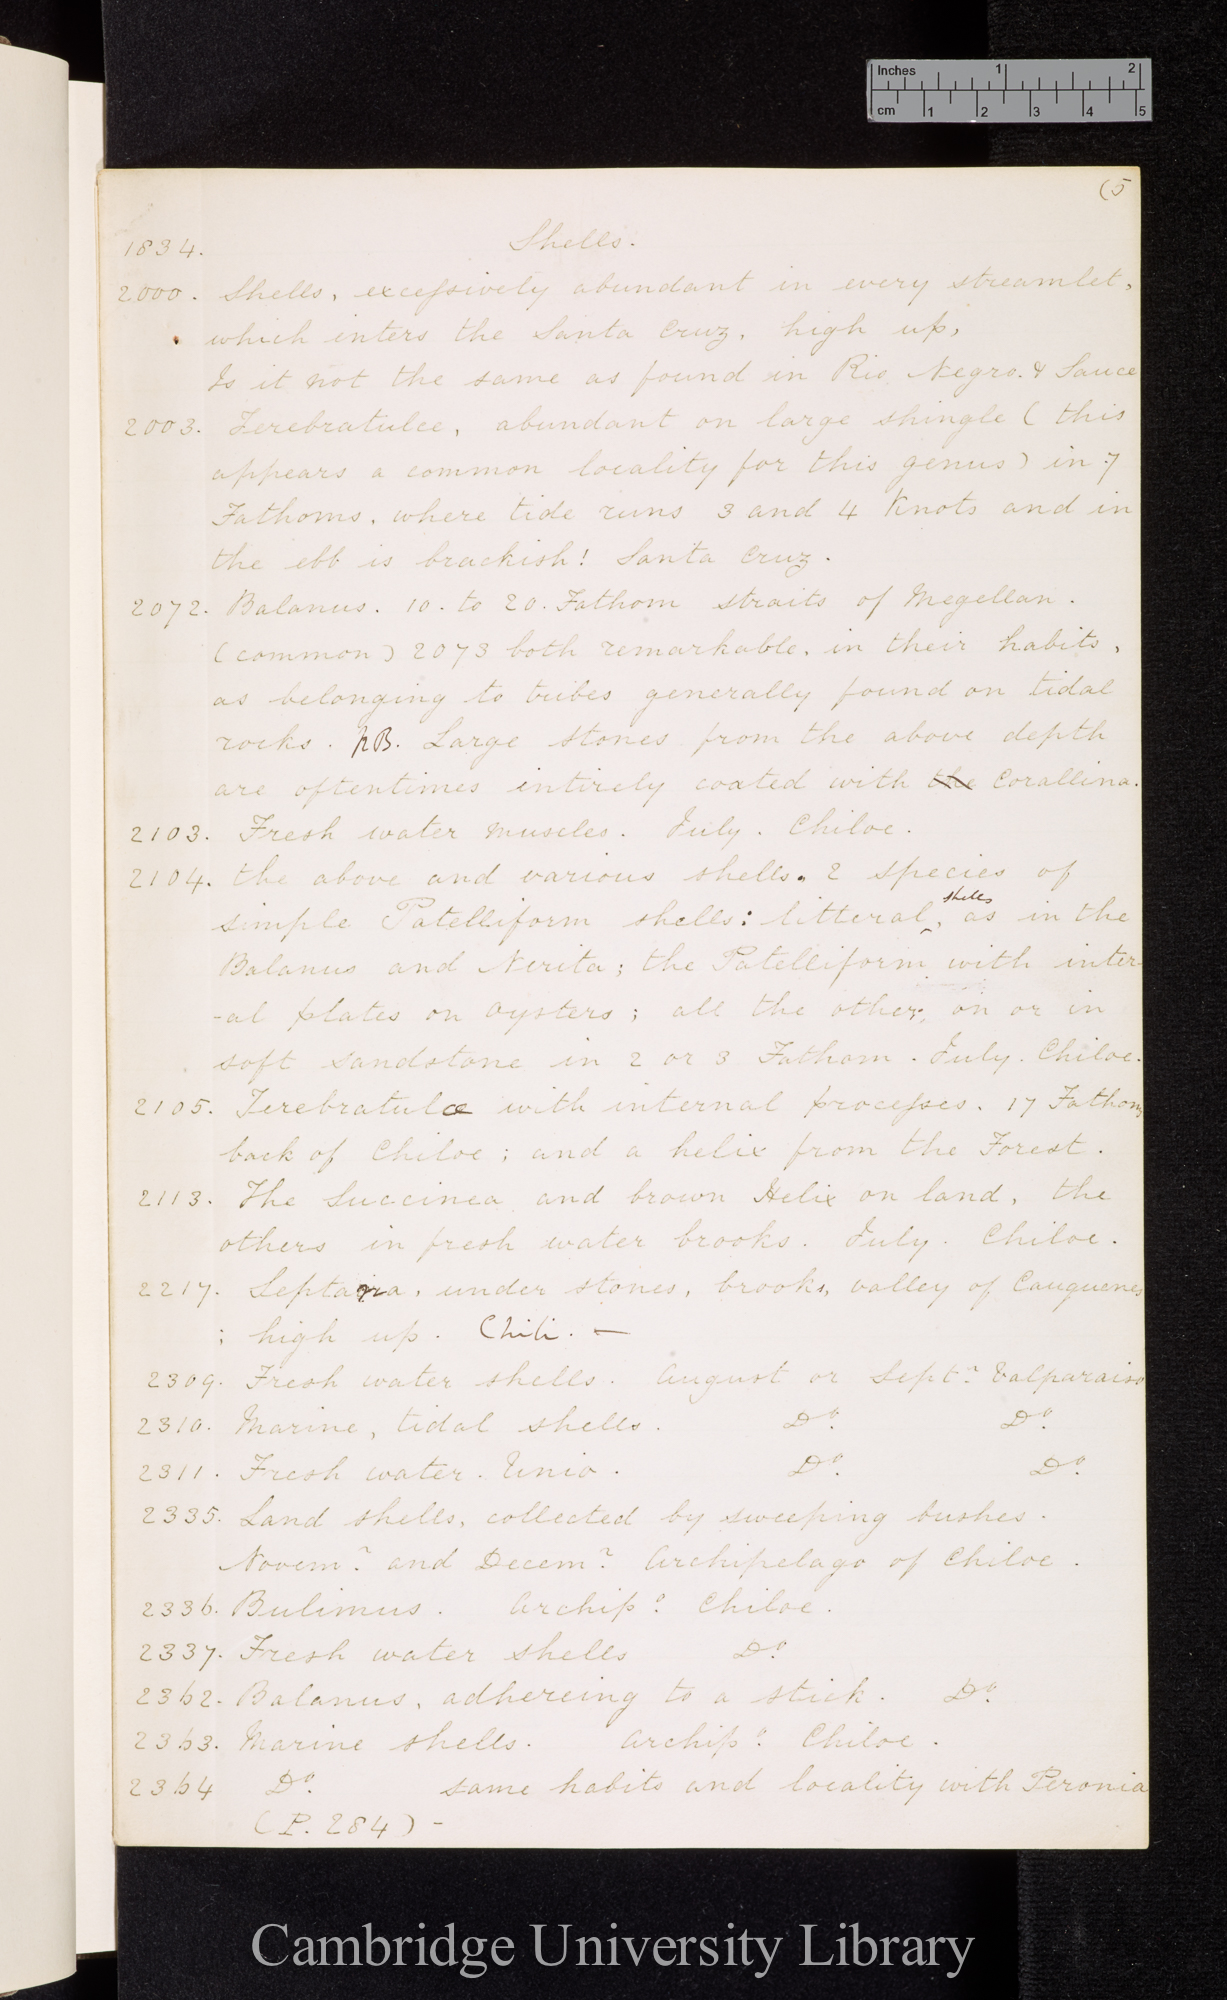 Inches 1 2
cm 1 2 3 4 5
(5
1834. Shells.
2000. Shells, excessively abundant in every streamlet,
which inters the Santa Cruz, high up,
Is it not the same as found in Rio Negro. & Sauce
2003. Terebratulæ, abundant on large shingle (this
appears a common locality for this genus) in 7
Fathoms, where tide runs 3 and 4 Knots and in
the ebb is brackish! Santa Cruz.
2072. Balanus. 10. to 20. Fathom straits of Megellan.
(common) 2073 both remarkable, in their habits,
as belonging to tribes generally found on tidal
rocks. NB. Large stones from the above depth
are oftentimes intirely coated with the Corallina.
2103. Fresh water muscles. July. Chiloe.
2104. the above and various shells. 2 species of
simple Patelliform shells: litteral, shells as in the
Balanus and Nerita; the Patelliform with inter-
-al plates on Oysters; all the other, on or in
soft sandstone in 2 or 3 Fathom. July. Chiloe.
2105. Terebratulæ with internal processes. 17 Fathoms
back of Chiloe; and a helix from the Forest.
2113. The Succinea and brown Helix on land, the
others in fresh water brooks. July. Chiloe.
2217. , under stones, brooks, valley of Cauquenes
; high up. Chili. —
2309. Fresh water shells. August or Septr. Valparaiso
2310. Marine, tidal shells. Do. Do.
2311. Fresh water. Unio. Do. Do.
2335. Land shells, collected by sweeping bushes.
Novemr. and Decemr. Archipelago of Chiloe.
2336. Bulimus. Archipo. Chiloe.
2337. Fresh water shells Do.
2362. Balanus, adhereing to a stick. Do.
2363. Marine shells. Archipo. Chiloe.
2364 Do. same habits and locality with Peronia
(P. 284) -
Cambridge University Library